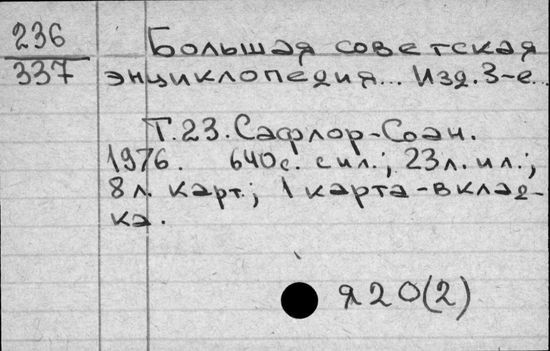 236
337
Большая советская
энциклопедия... Изд. 3-е..
Т. 23. Сафлор-Соан.
1976. 640с. с ил.; 23л. ил.;
8л. карт.; 1 карта-вклад-
ка.
Я20(2)